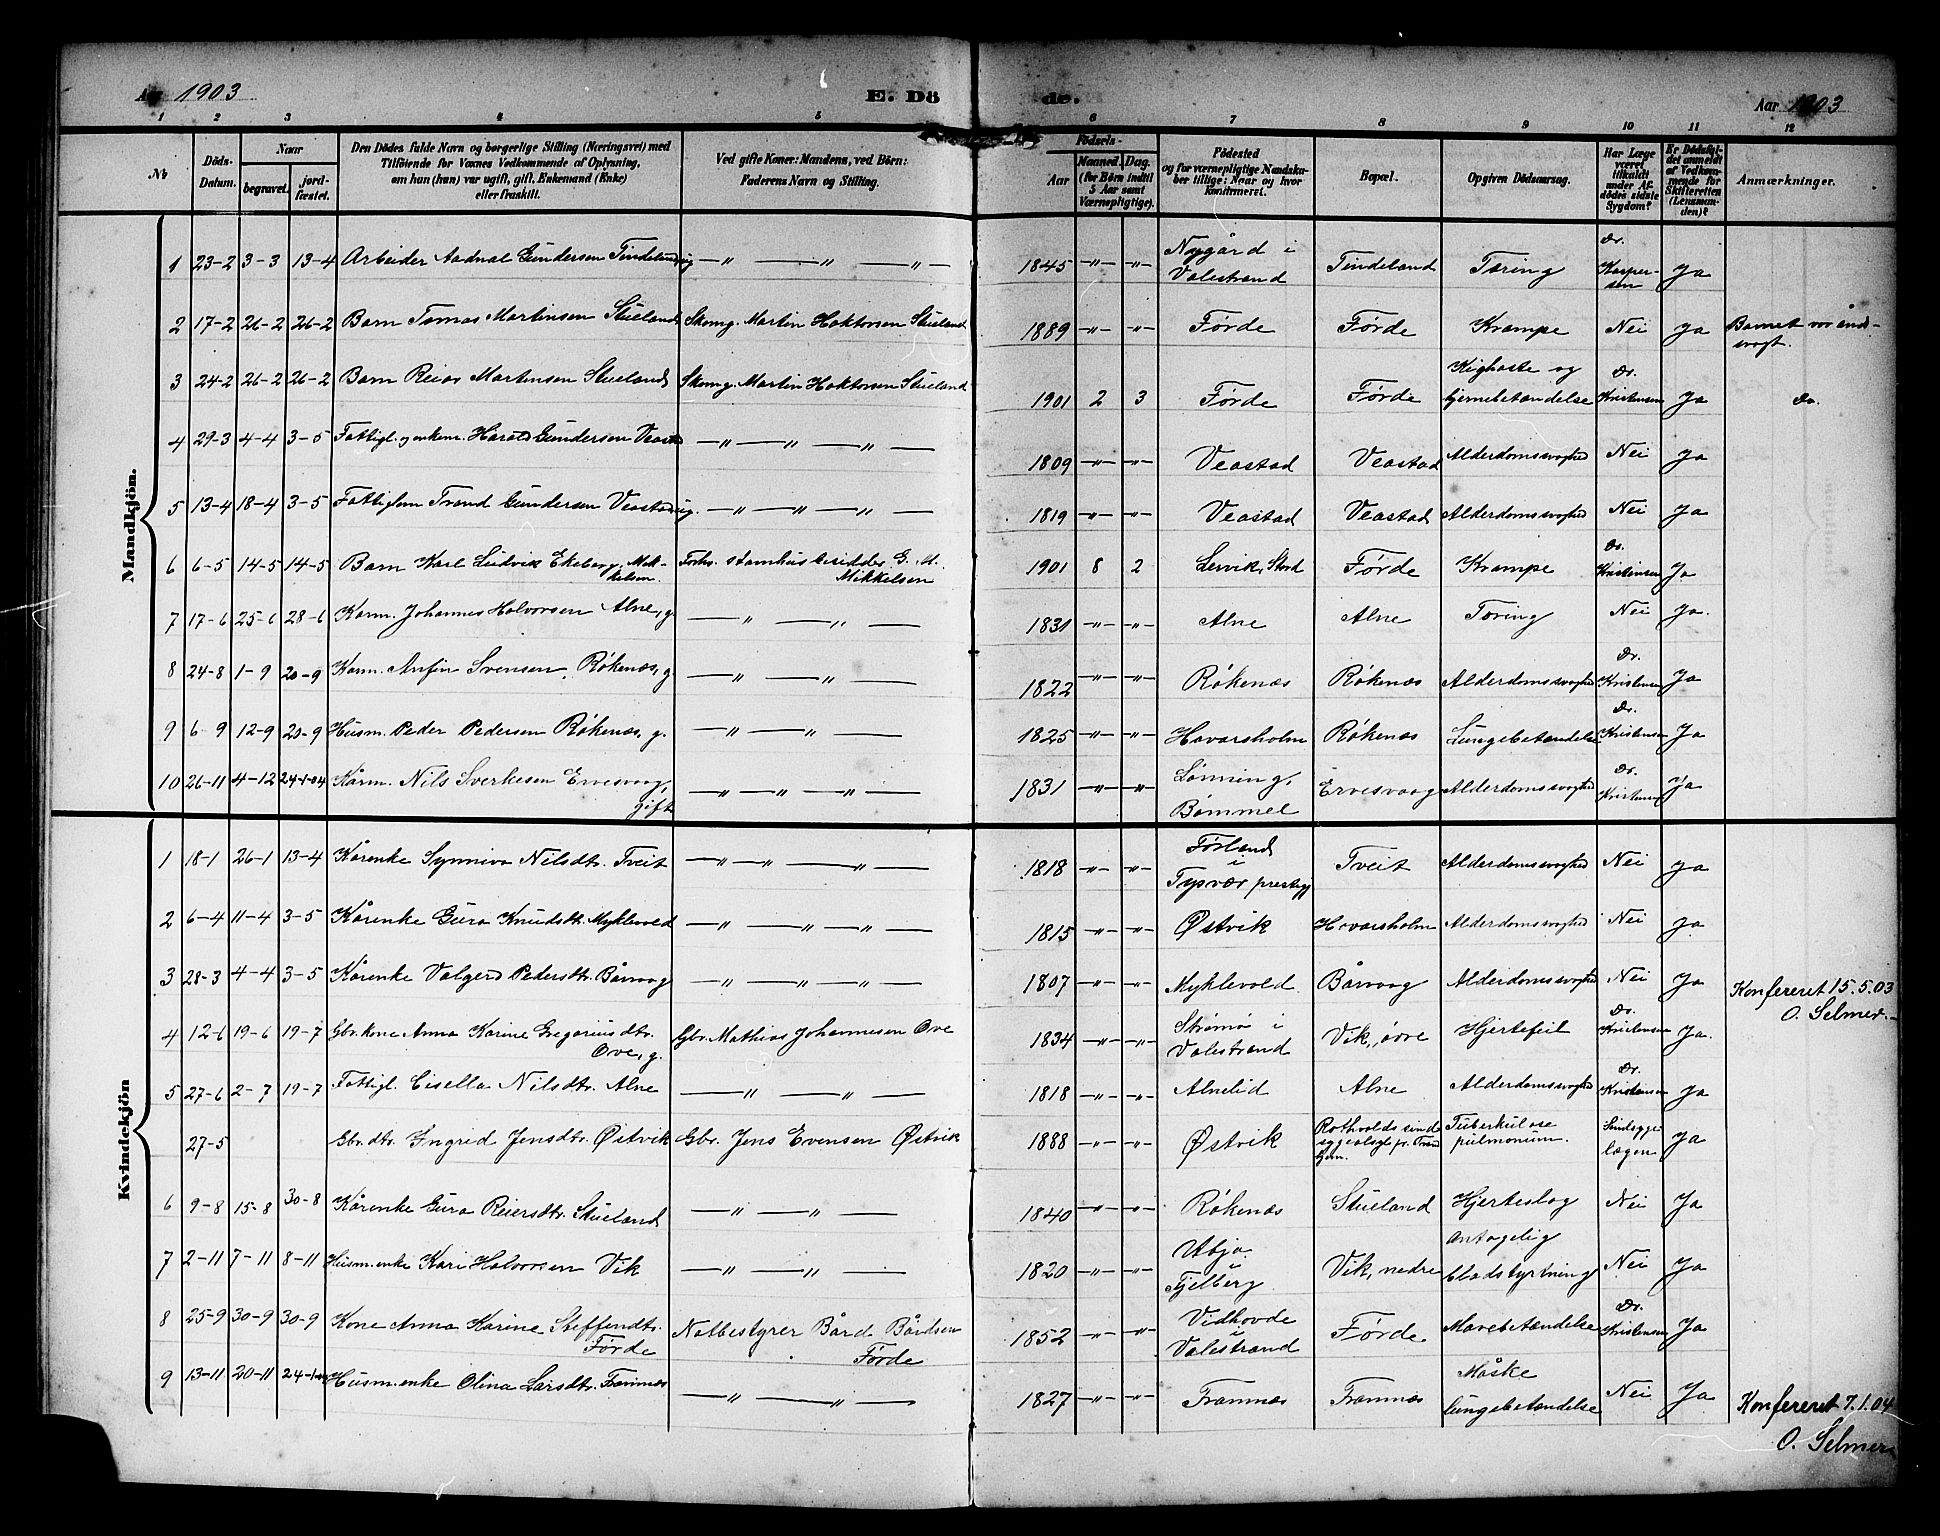 Aar 1903 E. Döde. Aar 1903
1 2 3 4 5 6 7 8 9 10 11 12
№ Döds-Datum. Naar begravet. jord-fæstet. Den Dödes fulde Navn og borgerlige Stilling (Næringsvei) med Tilföiende for Voxnes Vedkommende af Oplysning, om han (hun) var ugift, gift, Enkemand (Enke) eller fraskilt. Ved gifte Koner: Mandens, ved Börn: Faderens Navn og Stilling. Födsels- Aar Maaned. Dag. (for Börn indtil 5 Aar samt Værnepligtige). Födested og for værnepligtige Mandskaber tillige: Naar og hvor konfirmeret. Bopæl. Opgiven Dödsaarsag. Har Læge været tilkaldt under Afdödes sidste Sygdom? Er Dödsfaldet anmeldt af Vedkommende for Skifteretten (Lensmanden)? Anmærkninger.
Mandkjön.
1 23-2 3-3 13-4 Arbeider Aadnal Gundersen Tindeland ug — " — " — " — 1845 —"— —"— Nygård i Valestrand Tindeland Tæring Dr. Kaspersen Ja
2 17-2 26-2 26-2 Barn Tomas Martinsen Stueland Skomg. Martin Haktorsen Stueland 1889 —"— —"— Førde Førde Krampe Nei Ja Barnet var åndsvagt.
3 24-2 26-2 26-2 Barn Reias Martinsen Stueland Skomg. Martin Haktorsen Stueland 1901 2 3 Førde Førde Kighoste og hjernebetændelse Dr. Kristensen Ja Do.
4 29-3 4-4 3-5 Fattigl. og enkem. Harald Gundersen Veastad — " — " — " — 1809 —"— —"— Veastad Veastad Alderdomssvaghed Nei Ja
5 13-4 18-4 3-5 Fattiglem Trond Gundersen Veastad ug. — " — " — " — 1819 —"— —"— Veastad Veastad Alderdomssvaghed Nei Ja
6 6-5 14-5 14-5 Barn Karl Ludvik Ekeberg Mikkelsen Forhv. stamhusbesidder G. M. Mikkelsen 1901 8 2 Lervik, Stord Førde Krampe Dr. Kristensen Ja
7 17-6 25-6 28-6 Karm. Johannes Halvorsen Alne, g — " — " — 1831 —"— —"— Alne Alne Tæring Nei Ja.
8 24-8 1-9 20-9 Karm. Anfin Svensen, Røkenæs, g — " — " — 1822 —"— —"— Røkenæs Røkenæs Alderdomssvaghed Dr. Kristensen Ja
9 6 9 12-9 20-9 Husm. Peder Pedersen Røkenæs, g. — " — " — 1825 —"— —"— Hovarsholm Røkenæs Lungebetændelse Dr. Kristensen Ja
10 26-11 4-12 24-1-04 Kårm. Nils Sverkesen Ervesvaag, gift — " — " — " — 1831 —"— —"— Lønning, Bømmel Ervesvaag Alderdomssvaghed Dr. Kristensen Ja
Kvindekjön
1 18-1 26-1 13-4 Kårenke Synniva Nilsdtr. Tveit — " — " — " — 1818 —"— —"— Førland i Tysvær prestegj Tveit Alderdomssvaghed Nei Ja
2 6-4 11-4 3-5 Kårenke Guro Knudsdtr. Myklevold — " — " — " — 1815 —"— —"— Østvik Hovarsholm Alderdomssvaghed Nei Ja
3 28-3 4-4 3-5 Kårenke Valgerd Pedersdtr. Båvaag — " — " — " — 1807 —"— —"— Myklevold Båvaag Alderdomssvaghed Nei Ja Konfereret 15.5.03 O. Selmer.
4 12-6 19-6 19-7 Gbr. kone Anna Karine Gregoriusdtr. Ove, g. Gbr. Mathias Johannesen Ove 1834 —"— —"— Strømø i Valestrand Vik, øvre Hjertefeil Dr. Kristensen Ja.
5 27-6 2-7 19-7 Fattigl. Cisella Nilsdtr. Alne — " — " — 1818 —"— —"— Alnelid Alne Alderdomssvaghed Dr. Kristensen Ja
27-5 Gbr. dtr. Ingrid Jensdtr. Østvik Gbr. Jens Evensen Østvik 1888 —"— —"— Østvik Rothvolds sindssygeasyl pr. Trondhjem. Tuberkulose pulmonum. Sindssygelægen Ja
6 9-8 15-8 30-8 Kårenke Guro Reiersdtr. Stueland — " — " — 1840 —"— —"— Røkenæs Stueland Hjerteslag Nei Ja
7 2-11 7-11 8-11 Husm. enke Kari Halvorsen Vik — " — " — 1820 —"— —"— Ubjo i Fjelberg Vik, nedre antagelig blodstyrtning Nei Ja
8 25-9 30-9 30-9 Kone Anna Karine Steffendtr. Førde Notbestyrer Bård Bårdsen Førde 1852 —"— —"— Vidhovde i Valestrand Førde Mavebetændelse Dr. Kristensen Ja
9 13-11 20-11 24-1 Husm. enke Olina Larsdtr. Framnæs — " — " — 1827 —"— —"— Framnæs Framnæs Måske lungebetændelse Nei Ja Konfereret 7.1.04 O. Selmer